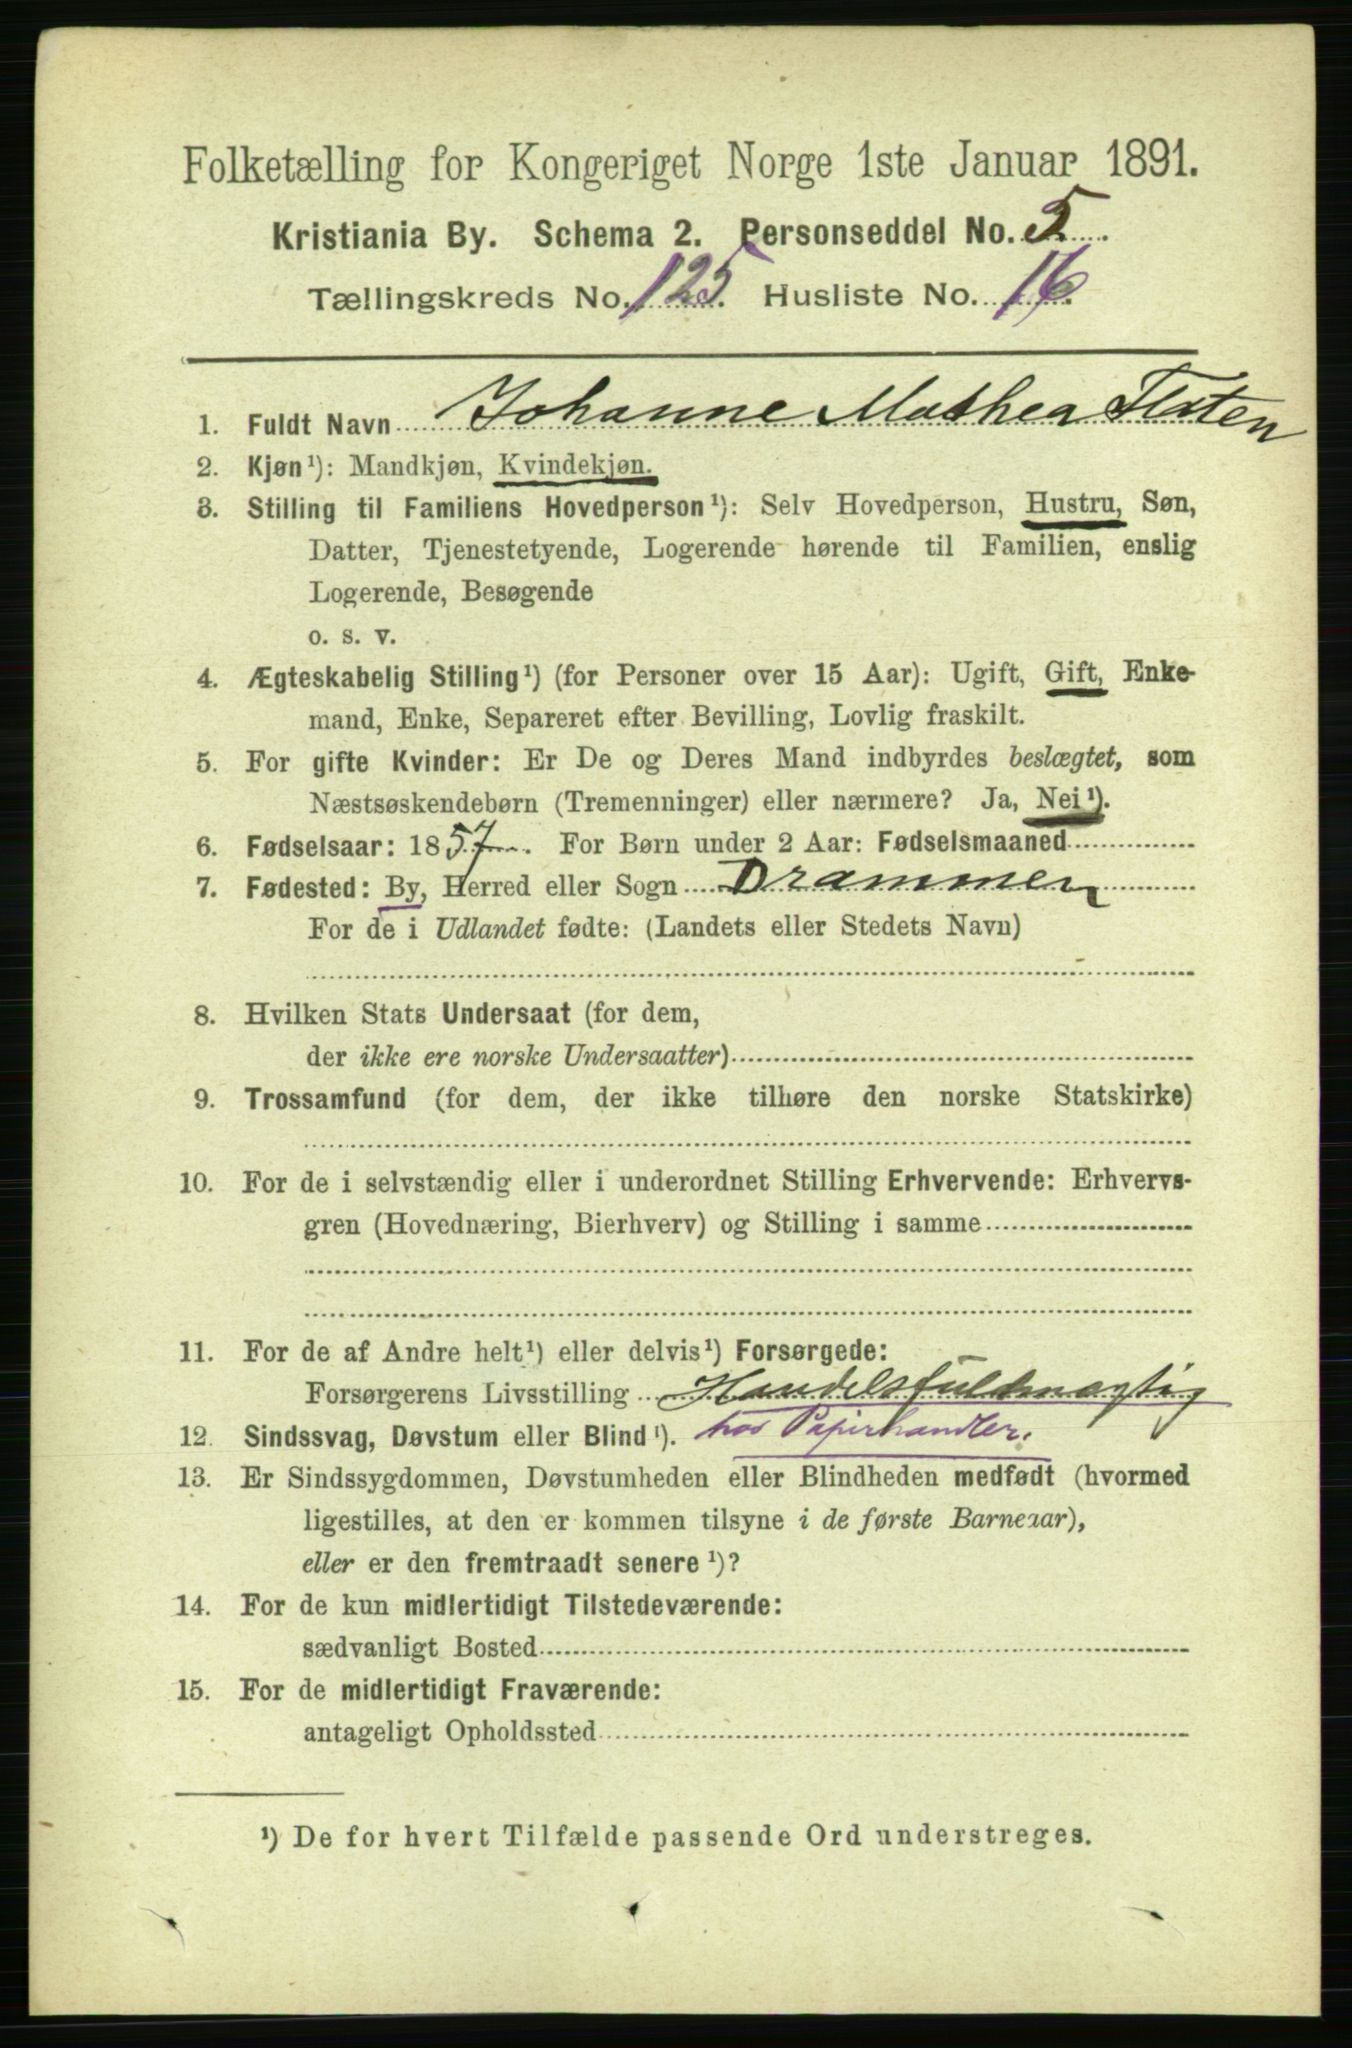 Folketælling for Kongeriget Norge 1ste Januar 1891.
Kristiania By. Schema 2. Personseddel No. 5.
Tællingskreds No. 125. Husliste No. 16.
1. Fuldt Navn Johanne Mathea Flaten
2. Kjøn¹): Mandkjøn, Kvindekjøn.
3. Stilling til Familiens Hovedperson¹): Selv Hovedperson, Hustru, Søn,
Datter, Tjenestetyende, Logerende hørende til Familien, enslig
Logerende, Besøgende
o. s. v.
4. Ægteskabelig Stilling¹) (for Personer over 15 Aar): Ugift, Gift, Enke-
mand, Enke, Separeret efter Bevilling, Lovlig fraskilt.
5. For gifte Kvinder: Er De og Deres Mand indbyrdes beslægtet, som
Næstsøskendebørn (Tremenninger) eller nærmere? Ja, Nei¹).
6. Fødselsaar: 1857. For Børn under 2 Aar: Fødselsmaaned
7. Fødested: By, Herred eller Sogn Drammen
For de i Udlandet fødte: (Landets eller Stedets Navn)
8. Hvilken Stats Undersaat (for dem,
der ikke ere norske Undersaatter)
9. Trossamfund (for dem, der ikke tilhøre den norske Statskirke)
10. For de i selvstændig eller i underordnet Stilling Erhvervende: Erhvervs-
gren (Hovednæring, Bierhverv) og Stilling i samme
11. For de af Andre helt¹) eller delvis¹) Forsørgede:
Forsørgerens Livsstilling Handelsfuldmægtig
12. Sindssvag, Døvstum eller Blind¹). hos Papirhandler.
13. Er Sindssygdommen, Døvstumheden eller Blindheden medfødt (hvormed
ligestilles, at den er kommen tilsyne i de første Barneaar),
eller er den fremtraadt senere¹)?
14. For de kun midlertidigt Tilstedeværende:
sædvanligt Bosted
15. For de midlertidigt Fraværende:
antageligt Opholdssted
¹) De for hvert Tilfælde passende Ord understreges.